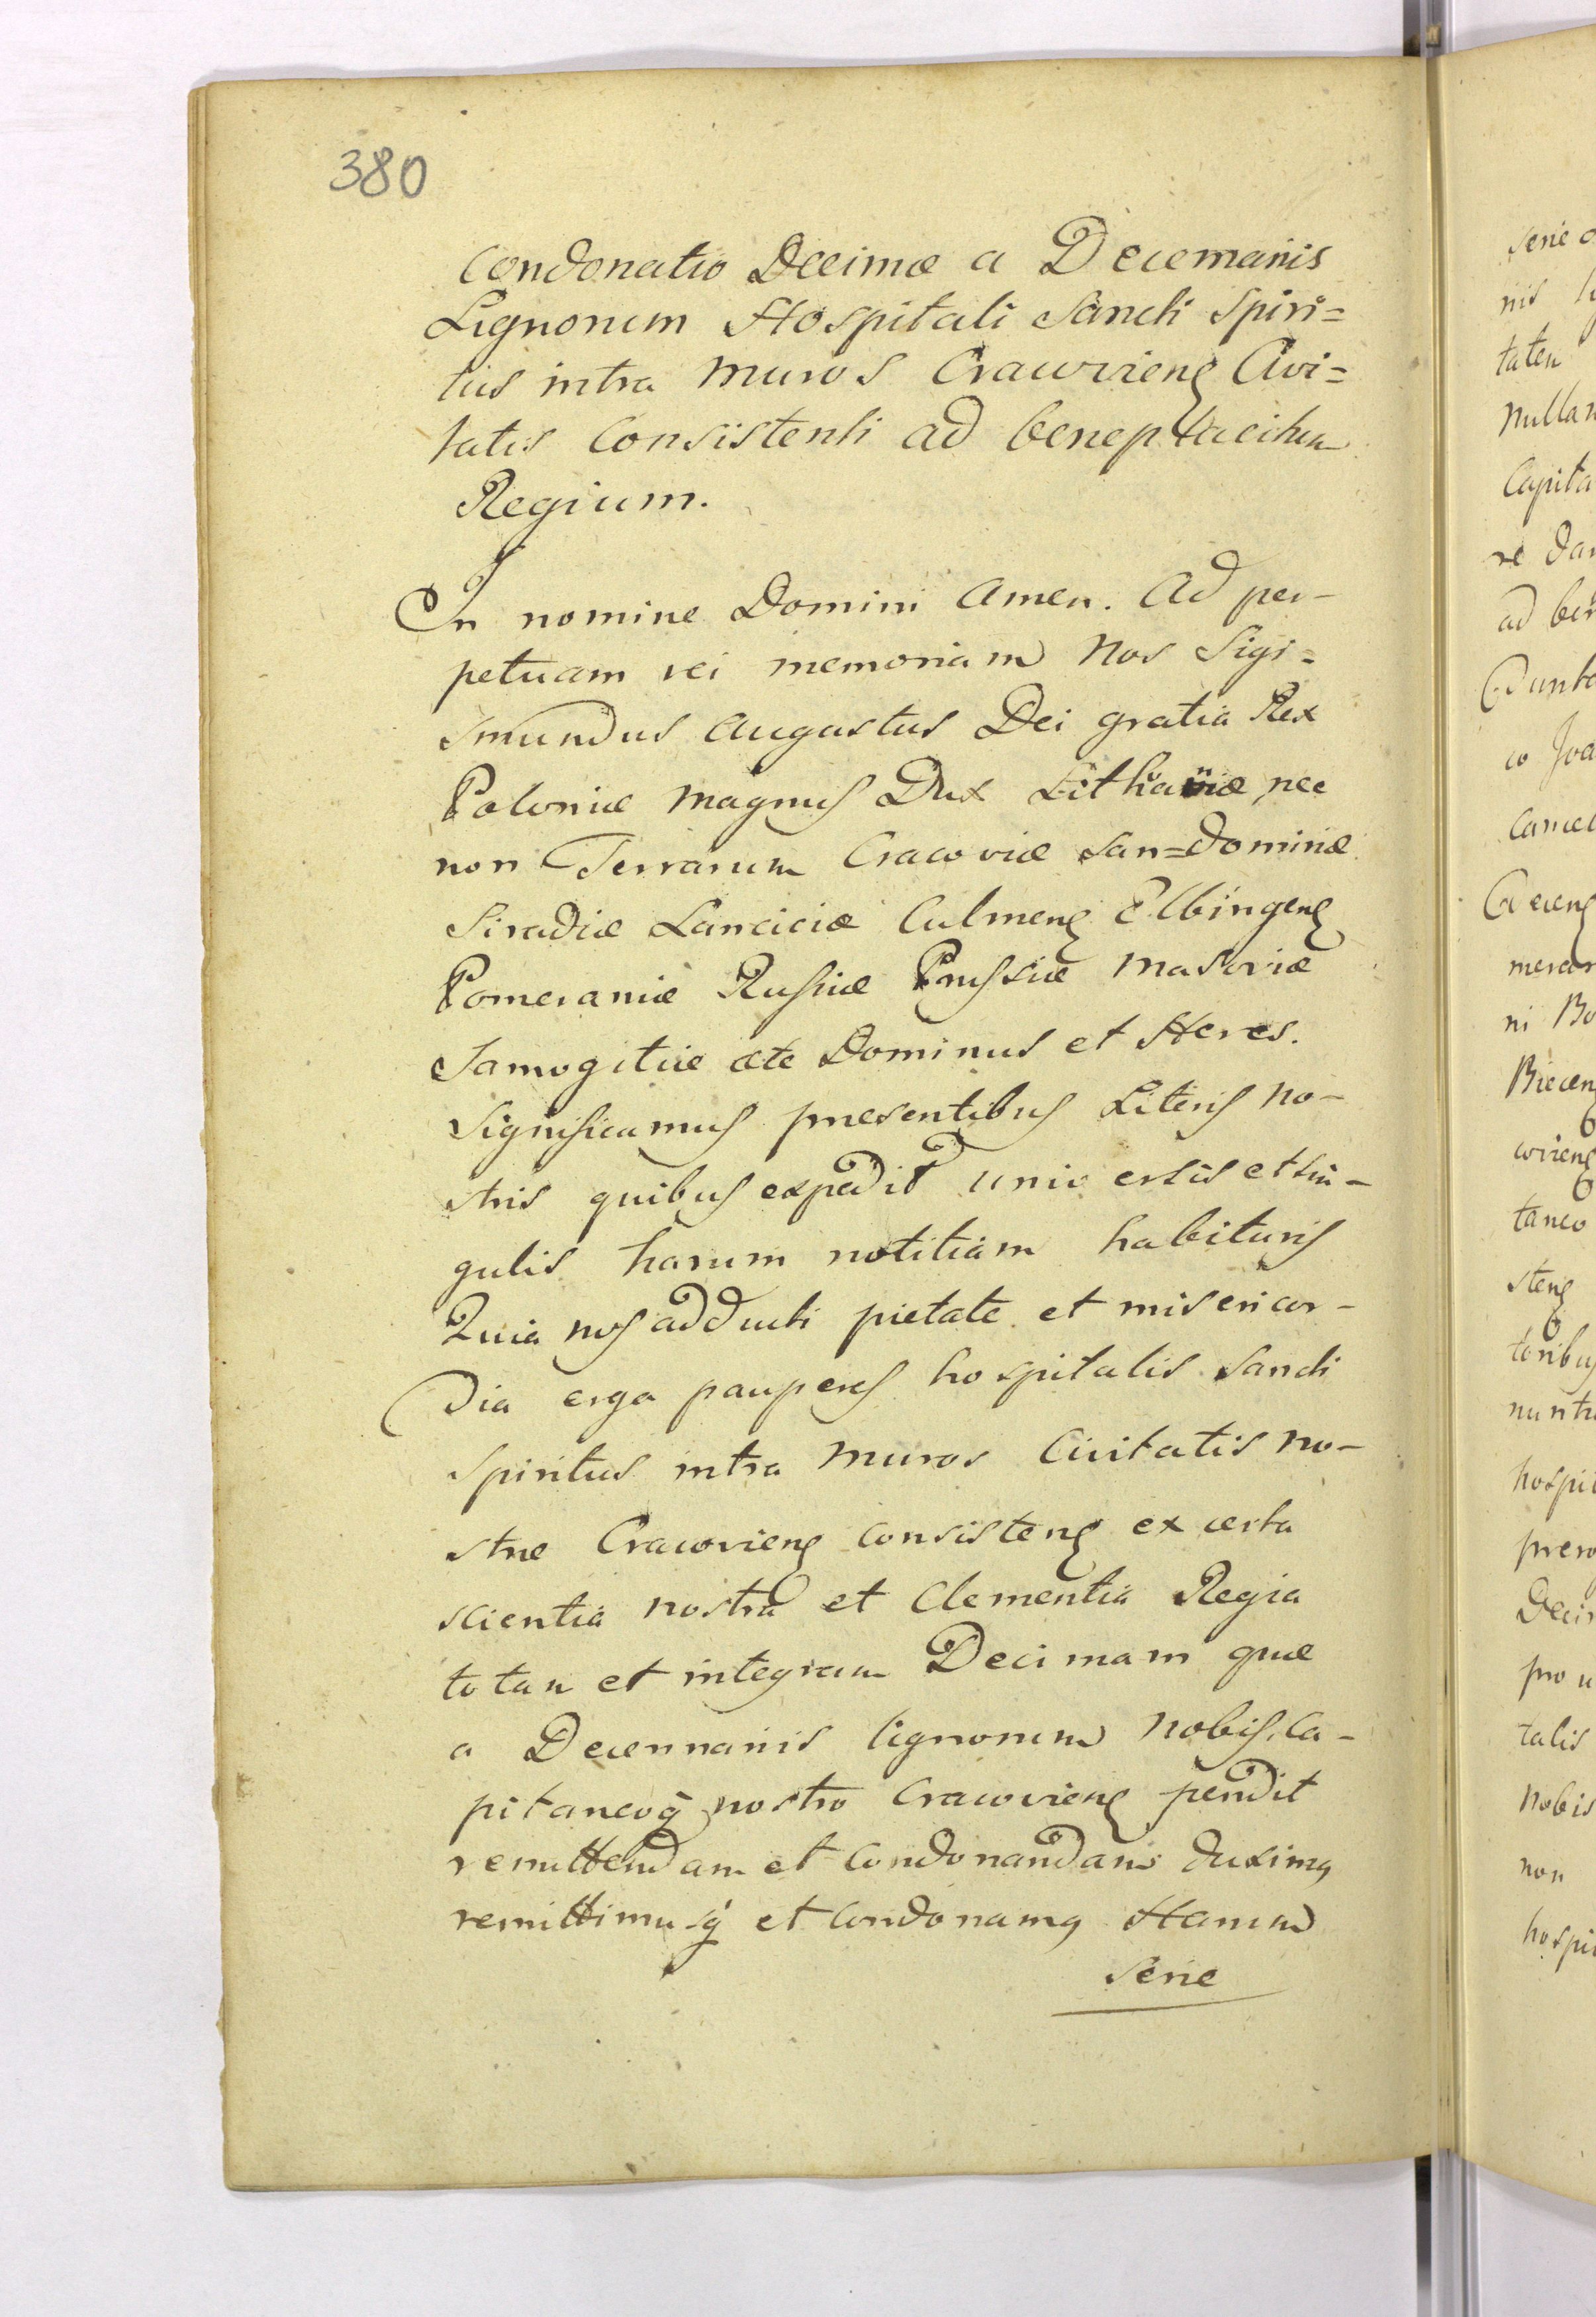 380
Condonatio Decimæ a Decemanis
Lignorum Hospitali Sancti Spiri=
tus intra muros Cracovieng Civi=
tatis Consistenti ad beneplacitum
Regium.
In nomine Domini Amen. Ad per-
petuam rei memoriam Nos Sigi=
smundus Augustus Dei gratia Rex
Poloniæ Magnus Dux Lithaniæ, nec
non Terrarum Cracoviæ San=dominæ
Siradiæ Lanciciæ Culmeng Elbingeng
Pomeraniæ Russiæ Prussiæ Masoviæ
Samogitiæ etc Dominus et Heres.
Significamus præsentibus Literis no-
stris quibus expedit universis et sin-
gulis harum notitiam habituris
Quia nos adducti pietate et misericor-
dia erga pauperes hospitalis Sancti
Spiritus intra muros Civitatis no-
stræ Cracovieng consisteng ex certa
scientia nostra et Clementia Regia
totam et integram Decimam quæ
a Decennariis lignorum Nobis, Ca-
pitaneoq nostro Cracovieng pendit
remittendam et Condonandam duximg
remittimusq et Condonamg Harum
Serie
serie
nis
taten
nullan
Capita
re dan
ad ben
co Joa
Cancel
mercar
ni Bo
Biecen
covieng
taneo
steng
toribus
nuntu
hospit
prero
Deci
pro u
talis
nobis
non
hospi